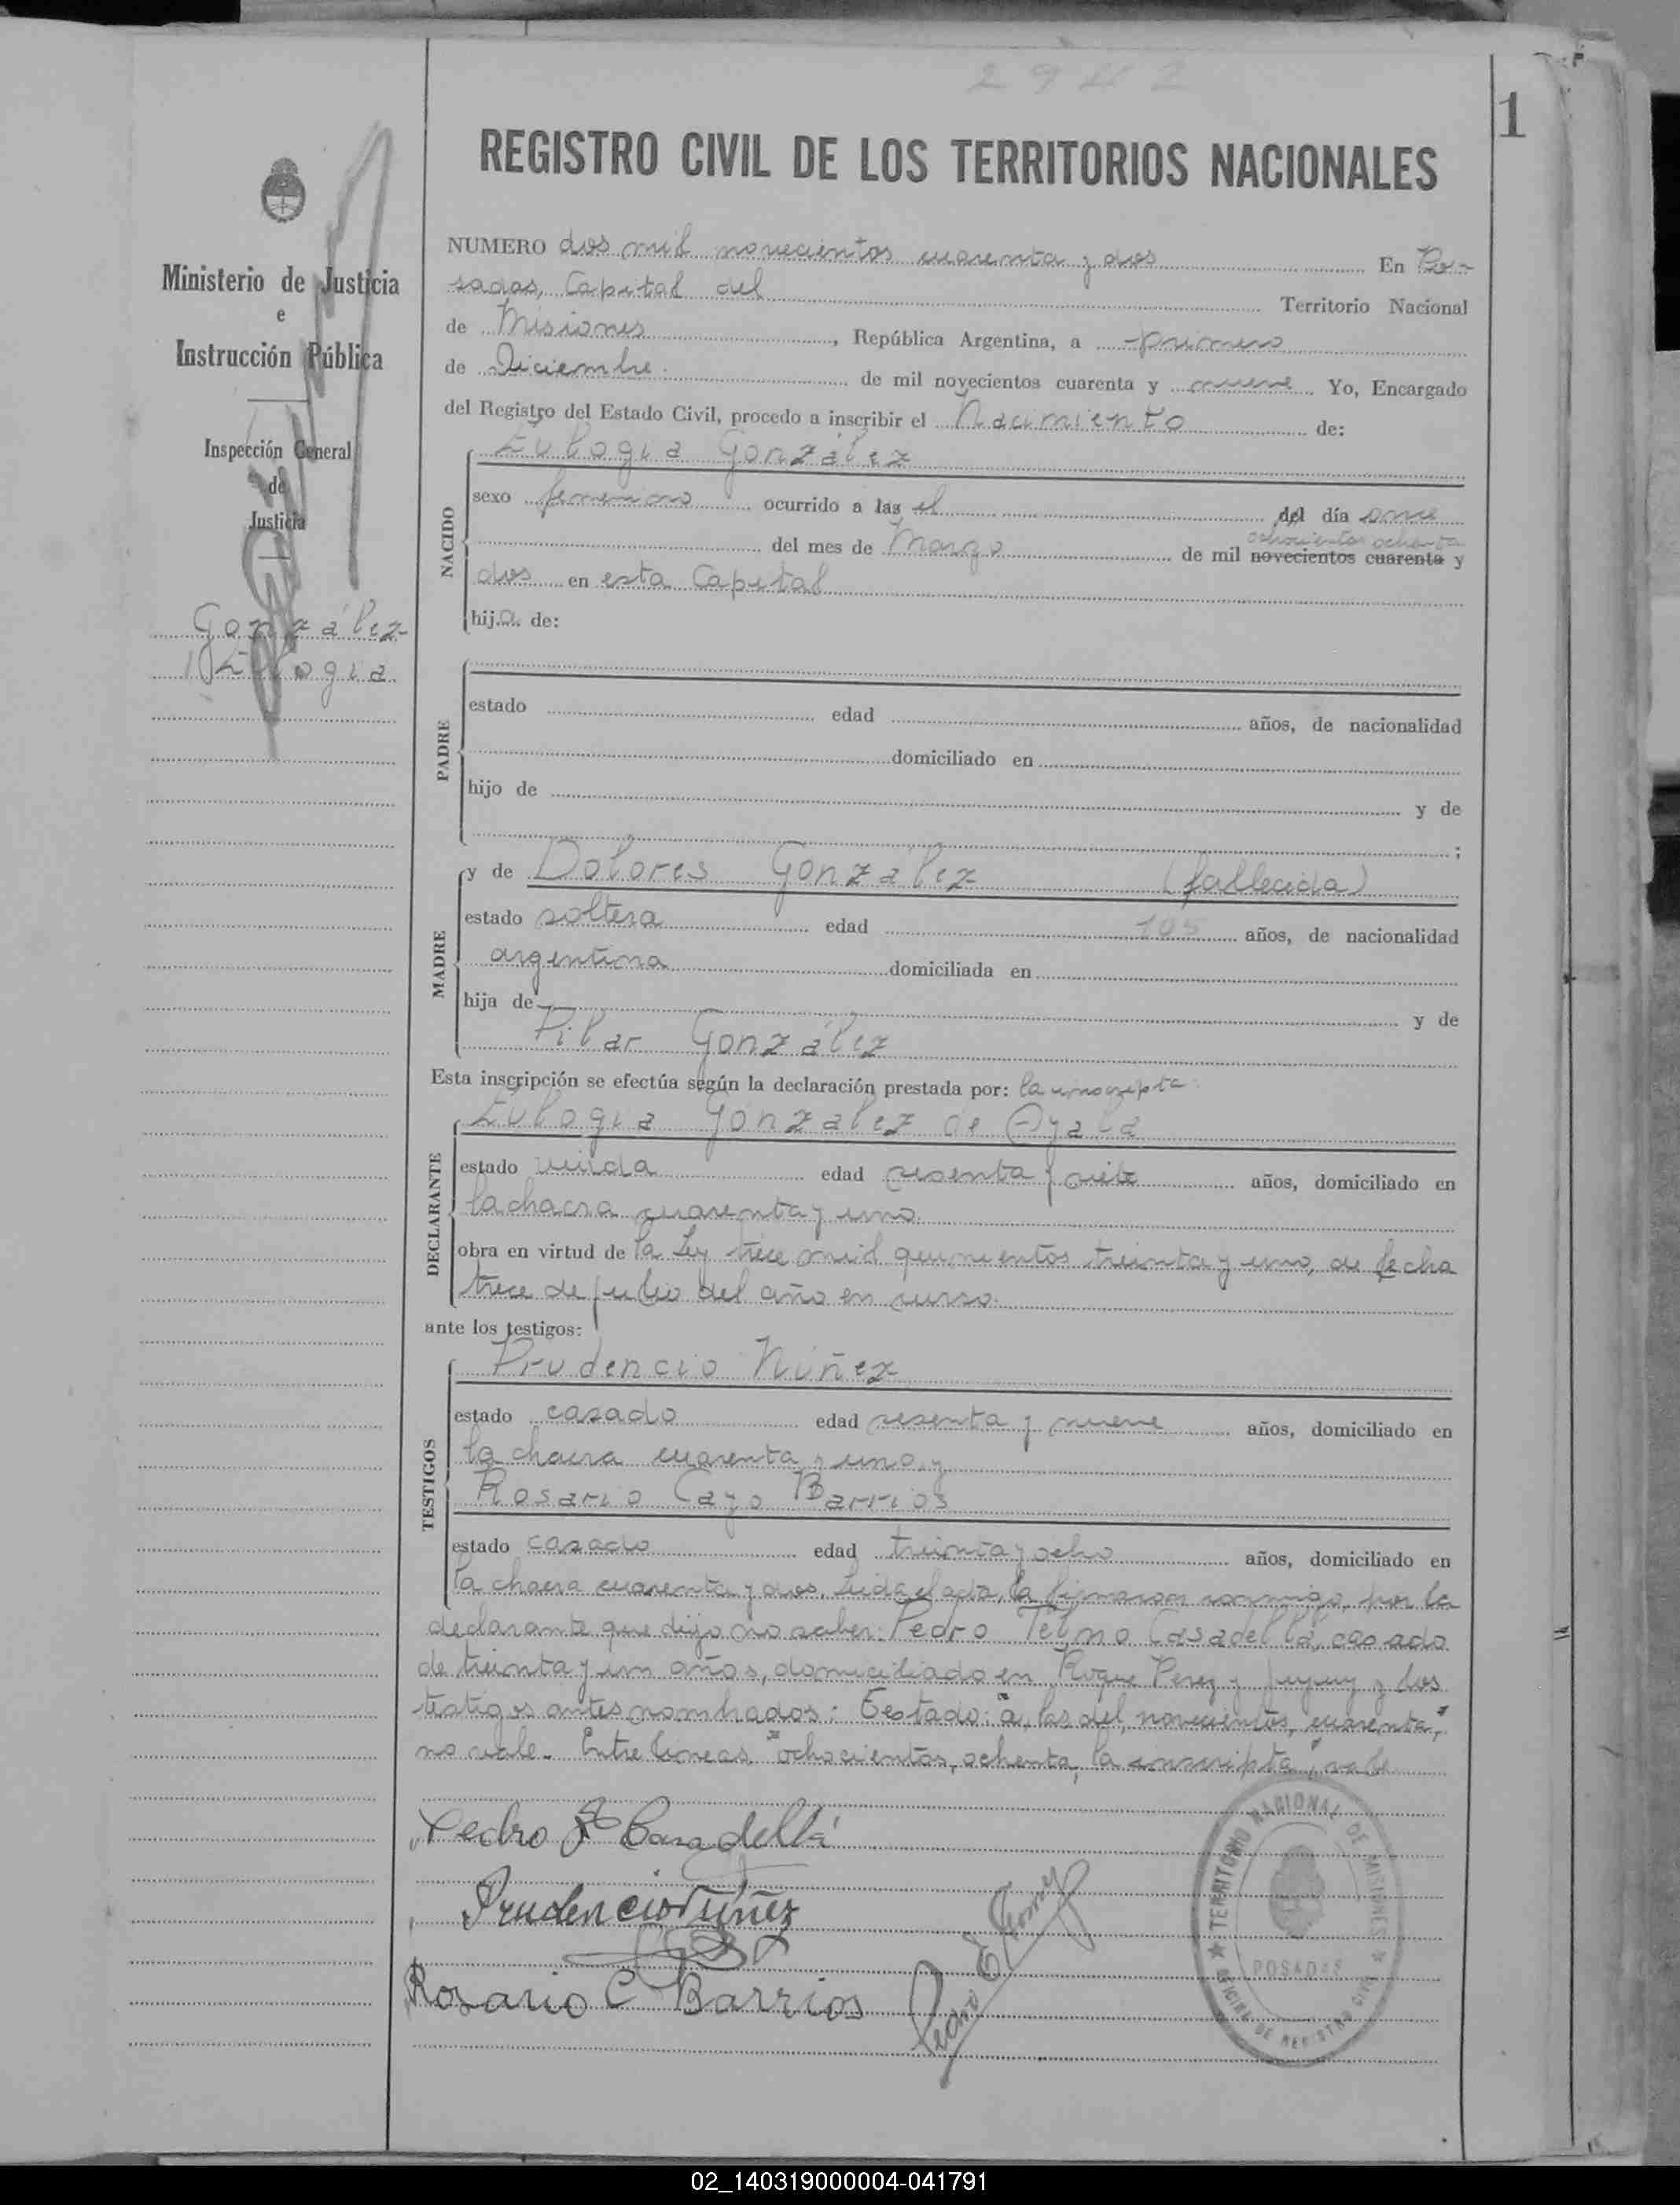 2942
1
REGISTRO CIVIL DE LOS TERRITORIOS NACIONALES
Ministerio de Justicia
e
Instrucción Pública
Inspección General
de
Justicia
González
Eulogia
NUMERO dos mil novecientos cuarenta y dos En Po-
sadas, Capital del Territorio Nacional
de Misiones, República Argentina, a primero
de Diciembre de mil novecientos cuarenta y nueve Yo, Encargado
del Registro del Estado Civil, procedo a inscribir el Nacimiento de:
NACIDO
Eulogia González
sexo femenino ocurrido a las el del día once
ochocientos ochenta
del mes de Marzo de mil novecientos cuarenta y
dos en esta Capital
hija de:
PADRE
estado edad años, de nacionalidad
domiciliado en
hijo de y de
;
MADRE
y de Dolores González (fallecida)
estado soltera edad 105 años, de nacionalidad
argentina domiciliada en
hija de y de
Pilar González
Esta inscripción se efectúa según la declaración prestada por: la inscripta
DECLARANTE
Eulogia González de Ayala
estado viuda edad sesenta y siete años, domiciliado en
la chacra cuarenta y uno
obra en virtud de la Ley trece mil quinientos treinta y uno, de fecha
trece de julio del año en curso.
ante los testigos:
TESTIGOS
Prudencio Núñez
estado casado edad sesenta y nueve años, domiciliado en
la chacra cuarenta y uno y
Rosario Cayo Barrios
estado casado edad treinta y ocho años, domiciliado en
la chacra cuarenta y dos. Leida el acta, la firmaron conmigo, por la
declarante que dijo no saber: Pedro Telmo Casadellá, casado
de treinta y un años, domiciliado en Roque Perez y Jujuy y los
testigos antes nombrados: Testado: "a, las del, novecientos, cuarenta,"
no vale. Entre lineas "ochocientos, ochenta, la inscripta", vale
Pedro T. Casadellá
Prudencio Núñez
Rosario C Barrios
TERRITORIO NACIONAL DE MISIONES
POSADAS
OFICINA DE REGISTRO CIVIL
02_140319000004-041791